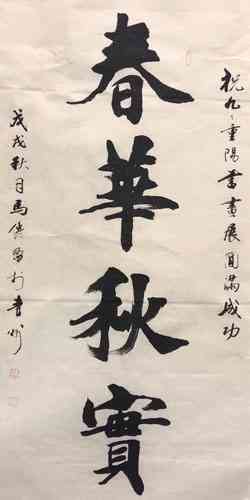 祝九々重陽書畫展圓滿成功
春華秋實
戊戌秋日馬於青州